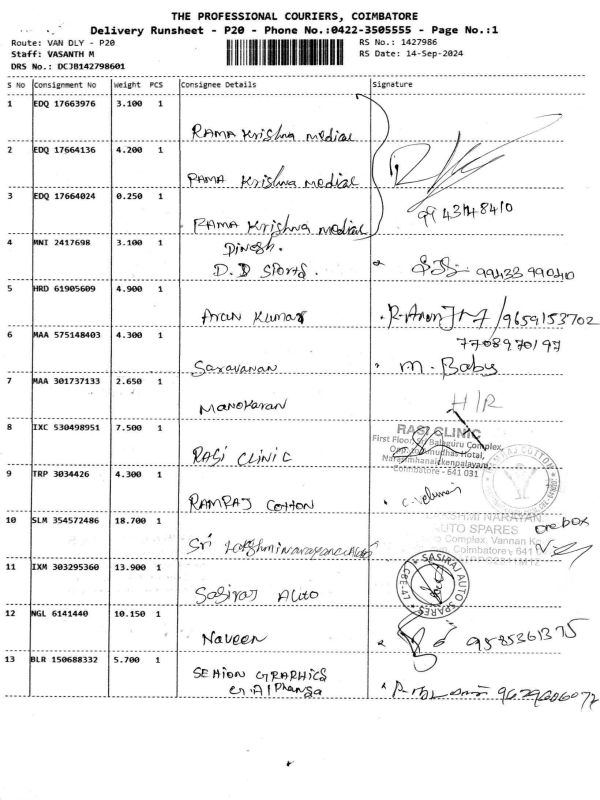 THE PROFESSIONAL COURIERS, COIMBATORE
Delivery Runsheet - P20 - Phone No.:0422-3505555 - Page No.:1
Route: VAN DLY - P20 RS No.: 1427986
Staff: VASANTH M RS Date: 14-Sep-2024
DRS No.: DCJB142798601
S No Consignment No Weight PCS Consignee Details Signature
1 EDQ 17663976 3.100 1
RAMA Krishna medical
2 EDQ 17664136 4.200 1
RAMA Krishna medical
3 EDQ 17664024 0.250 1
9943148410
RAMA Krishna medical
4 MNI 2417698 3.100 1 Dinesh.
D.D Sports. 9943399040
5 HRD 61905609 4.900 1
Arun Kumar /9659153702
6 MAA 575148403 4.300 1 7708970197
Saravanan m. Baby
7 MAA 301737133 2.650 1
Manokaran H/R
8 IXC 530498951 7.500 1 RASI CLINIC
First Floor, Sri Balaguru Complex,
Narasimhanaickenpalayam,
RASI CLINIC Coimbatore - 641 031
9 TRP 3034426 4.300 1
RAMRAJ COTTON
10 SLM 354572486 18.700 1 AUTO SPARES one box
Complex, Vannan
Sri Lakshminarayana Auto Coimbatore - 641
11 IXM 303295360 13.900 1 SASIRAJ AUTO SPARES
Sasiraj Auto
12 NGL 6141440 10.150 1
Naveen 9585361375
13 BLR 150688332 5.700 1 SEHION GRAPHICS
9629606072